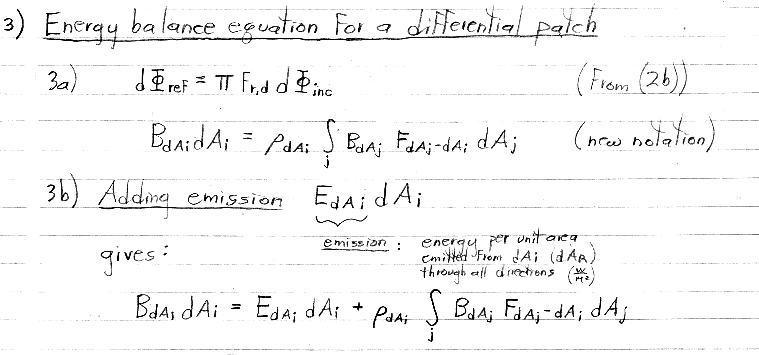 3) Energy balance equation for a differential patch
3a) dΦref = π Fr,d dΦinc (From (2b))
BdAi dAi = ρdAi ∫j BdAj FdAj-dAi dAj (new notation)
3b) Adding emission EdAi dAi
gives: emission : energy per unit area
emitted from dAi (dAR)
through all directions (W/M²)
BdAi dAi = EdAi dAi + ρdAi ∫j BdAj FdAj-dAi dAj